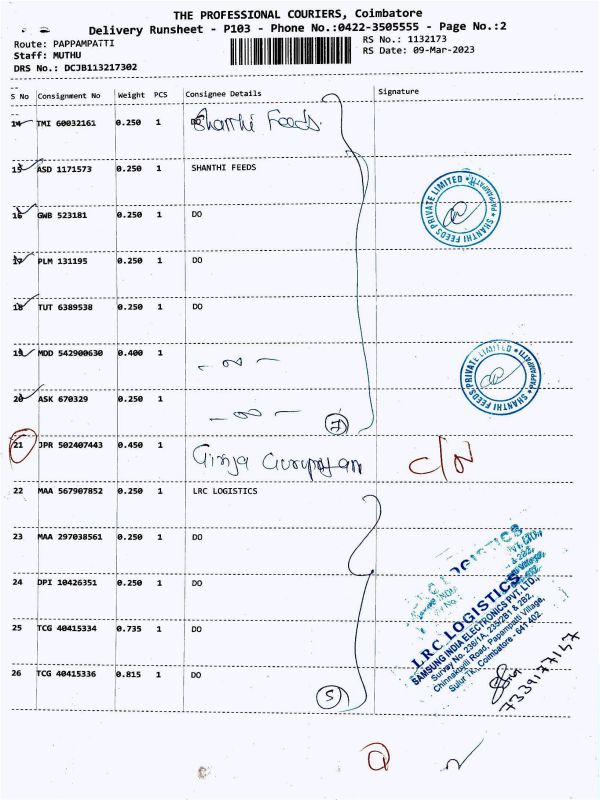 THE PROFESSIONAL COURIERS, Coimbatore
Delivery Runsheet - P103 - Phone No.:0422-3505555 - Page No.:2
Route: PAPPAMPATTI
RS No.: 1132173
Staff: MUTHU
RS Date: 09-Mar-2023
DRS No.: DCJB113217302
S No Consignment No Weight PCS Consignee Details Signature
14 TMI 60032161 0.250 1 Shanthi Feeds
15 ASD 1171573 0.250 1 SHANTHI FEEDS
16 GWB 523181 0.250 1 DO
SHANTHI FEEDS PRIVATE LIMITED
17 PLM 131195 0.250 1 DO
18 TUT 6389538 0.250 1 DO
19 MDD 542900630 0.400 1 - do -
SHANTHI FEEDS PRIVATE LIMITED
20 ASK 670329 0.250 1 - do -
7
21 JPR 502407443 0.450 1
22 MAA 567907852 0.250 1 LRC LOGISTICS
23 MAA 297038561 0.250 1 DO
24 DPI 10426351 0.250 1 DO
25 TCG 40415334 0.735 1 DO
26 TCG 40415336 0.815 1 DO
5
LRC LOGISTICS
SAMSUNG INDIA ELECTRONICS PVT. LTD.,
Survey No. 238/1A, 235/2B1 & 2B2,
Chinnakuyili Road, Papampatti Village,
Sulur TK., Coimbatore - 641 402
7339177157